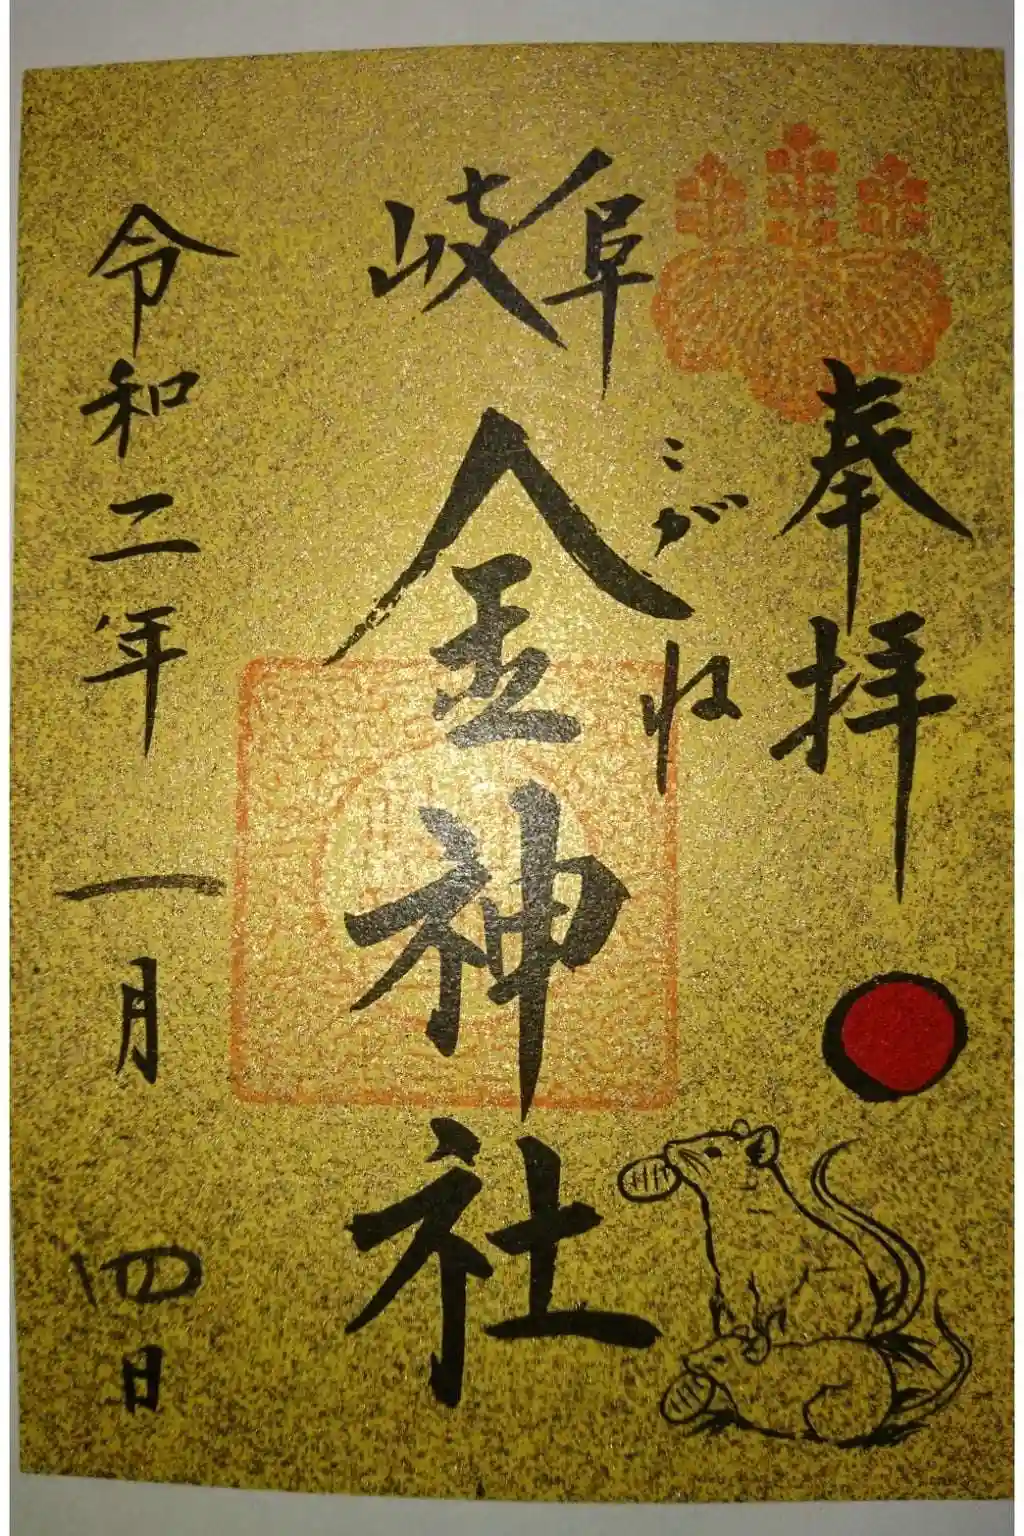 奉拝
岐阜
こがね
金神社
令和二年一月四日